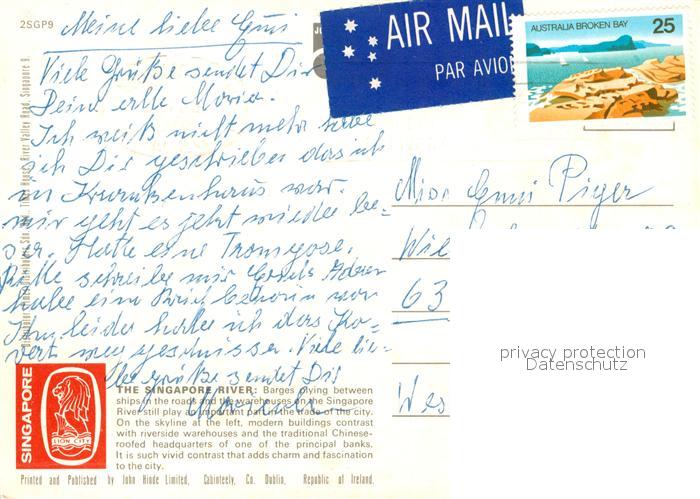 2SGP9
Meine liebe Gusi
AIR MAIL
PAR AVION
AUSTRALIA BROKEN BAY 25
Viele Grüße sendet Dir
Deine alte Maria.
Ich weiß nicht mehr habe
ich Dir geschrieben das ich
im Krankenhaus war.
mir geht es jetzt wieder be-
ser. Hatte eine Trombose.
Bitte schreibe mir Adresse
habe eine Brief bekomen von
Ihm leider habe ich das Ko-
vert weggeschmissen. Viele lie-
be grüße sendet Dir
Miss Piger
Wie
63
Wes
privacy protection
Datenschutz
SINGAPORE
LION CITY
THE SINGAPORE RIVER: Barges plying between
ships in the roads and the warehouses on the Singapore
River still play an important part in the trade of the city.
On the skyline at the left, modern buildings contrast
with riverside warehouses and the traditional Chinese-
roofed headquarters of one of the principal banks.
It is such vivid contrast that adds charm and fascination
to the city.
Printed and Published by John Hinde Limited, Cabinteely, Co. Dublin, Republic of Ireland.
River Valley Road, Singapore 9.